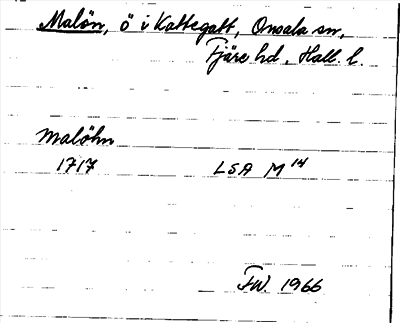 Malön, ö i Kattegatt, Onsala sn,
Fjäre hd, Hall. l.
Malöhn
1717 LSA M 14
FW. 1966